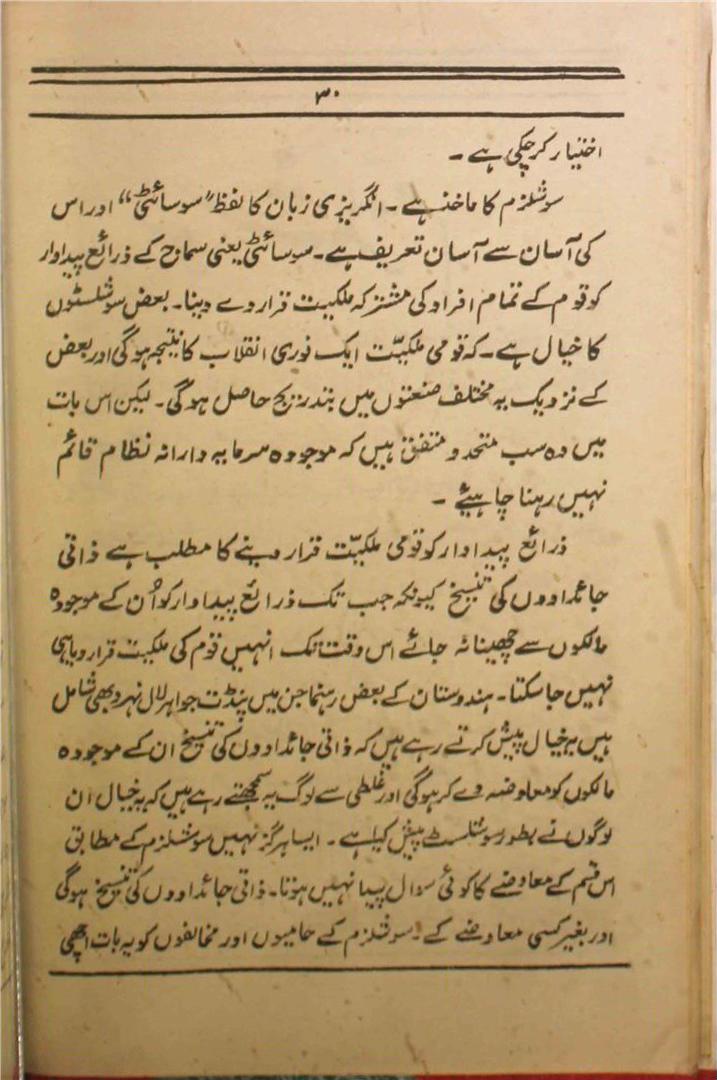 ۳۰
اختیار کر چکی ہے ۔
سوشلزم کا ماخذ ہے ۔ انگریزی زبان کا لفظ "سوسائٹی" اور اس
کی آسان سے آسان تعریف ہے ۔ سوسائٹی یعنی سماج کے ذرائع پیداوار
کو قوم کے تمام افراد کی مشترکہ ملکیت قرار دے دینا ۔ بعض سوشلسٹوں
کا خیال ہے ۔ کہ قومی ملکیّت ایک فوری انقلاب کا نتیجہ ہوگی اور بعض
کے نزدیک یہ مختلف صنعتوں میں بتدریج حاصل ہوگی ۔ لیکن اس بات
میں وہ سب متحد و متفق ہیں کہ موجودہ سرمایہ دارانہ نظام قائم
نہیں رہنا چاہیئے ۔
ذرائع پیداوار کو قومی ملکیّت قرار دینے کا مطلب ہے ذاتی
جائدادوں کی تنسیخ کیونکہ جب تک ذرائع پیداوار کو اُن کے موجودہ
مالکوں سے چھینا نہ جائے اس وقت تک انہیں قوم کی ملکیت قرار دیا ہی
نہیں جا سکتا ۔ ہندوستان کے بعض رہنما جن میں پنڈت جواہر لال نہرو بھی شامل
ہیں یہ خیال پیش کرتے رہے ہیں کہ ذاتی جائدادوں کی تنسیخ ان کے موجودہ
مالکوں کو معاوضہ دے کر ہوگی اور غلطی سے لوگ یہ سمجھتے رہے ہیں کہ یہ خیال ان
لوگوں نے بطور سوشلسٹ پیش کیا ہے ۔ ایسا ہرگز نہیں سوشلزم کے مطابق
اس قسم کے معاوضے کا کوئی سوال پیدا نہیں ہوتا ۔ ذاتی جائدادوں کی تنسیخ ہوگی
اور بغیر کسی معاوضے کے ۔ سوشلزم کے حامیوں اور مخالفوں کو یہ بات اچھی